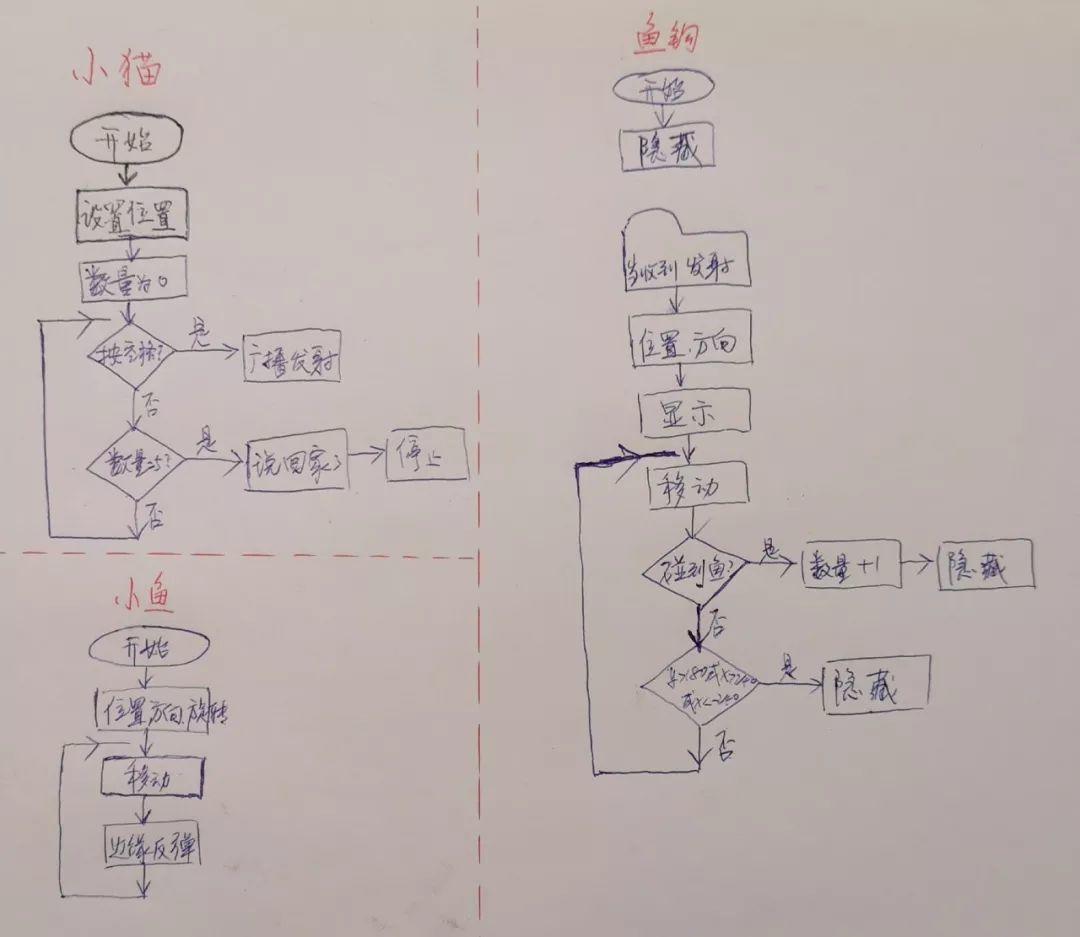 小猫
开始
设置位置
数量为0
按空格?
是
广播发射
否
数量=5?
是
说回家了
停止
否
小鱼
开始
位置方向旋转
移动
边缘反弹
鱼钩
开始
隐藏
当收到发射
位置、方向
显示
移动
碰到鱼?
是
数量+1
隐藏
否
y>180或x>240
或x<-240
是
隐藏
否